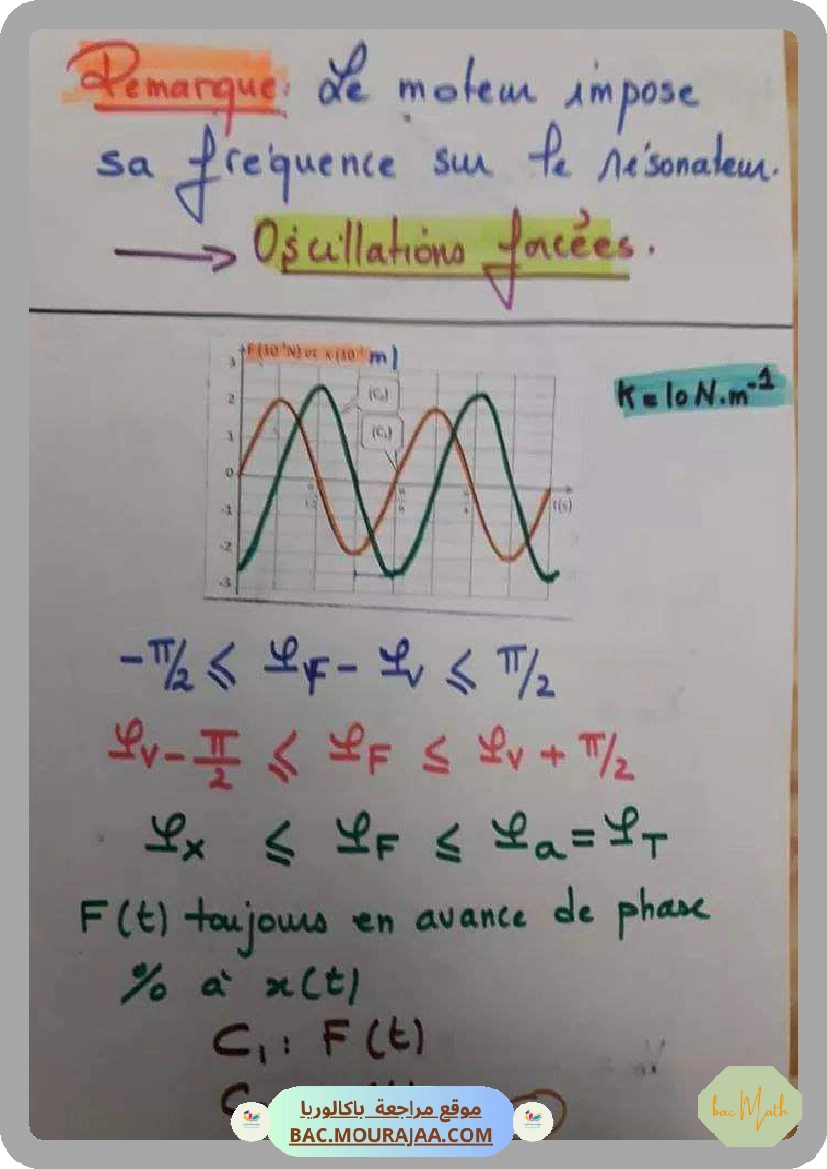 Remarque: Le moteur impose
sa fréquence sur le résonateur.
→ Oscillations forcées.
m)
K = 10 N.m⁻¹
3
2
(C₁)
1
0
t(s)
-1
-2
-3
-π/2 ⩽ φF - φv ⩽ π/2
φv - π/2 ⩽ φF ≤ φv + π/2
φx ≤ φF ≤ φa = φT
F(t) toujours en avance de phase
% à x(t)
C₁ : F(t)
موقع مراجعة باكالوريا
BAC.MOURAJAA.COM
bac Math